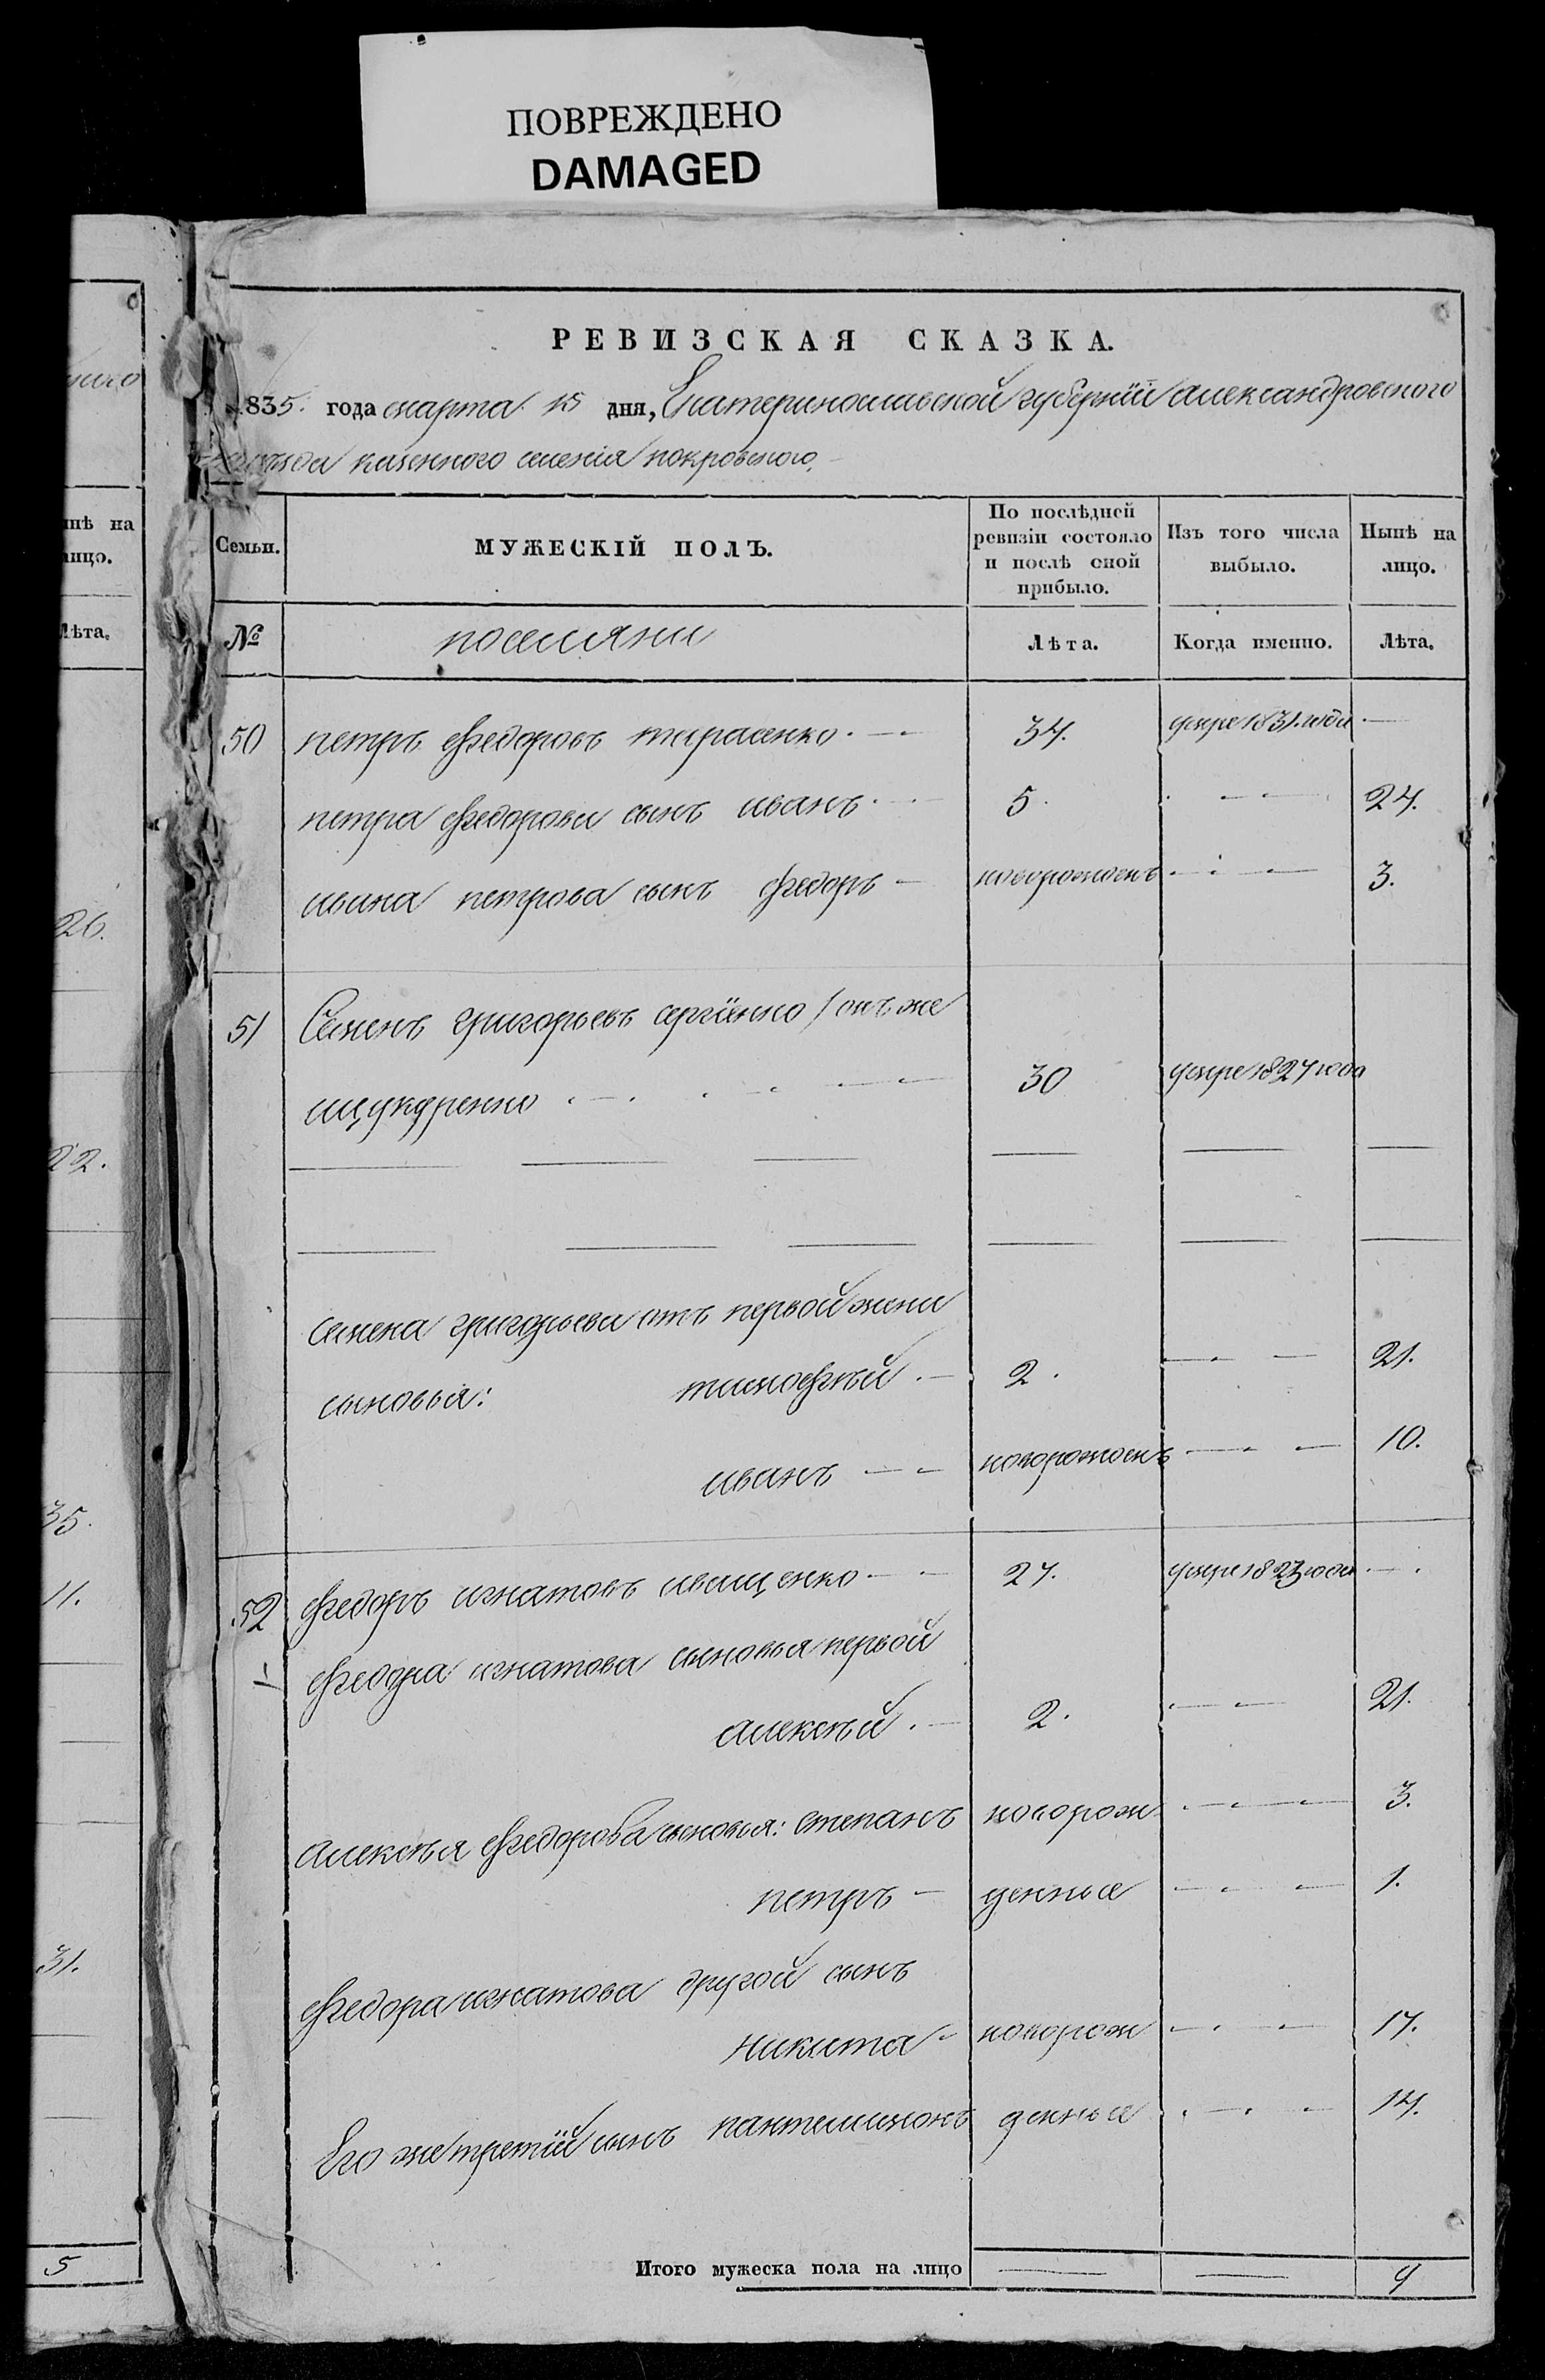 ПОВРЕЖДЕНО
DAMAGED
РЕВИЗСКАЯ СКАЗКА.
1835. года марта 15 дня, Екатеринославской губернїи александровского
уезда казенного селенія покровского.
Семьи. МУЖЕСКІЙ ПОЛЪ. По послѣдней ревизіи состояло и послѣ оной прибыло. Изъ того числа выбыло. Нынѣ на лицо.
№ поселяни Лѣта. Когда именно. Лѣта.
50 петръ федоровъ тарасенко 34. умре 1831. года
петра федорова сынъ иванъ 5. 24.
ивана петрова сынъ федоръ новорожденъ 3.
51 Семенъ григорьевъ сергїенко / онъ же
щукуренко 30 умре 1827 года
семена григорьева отъ первой жени
сыновья: тимофѣй 2. 21.
иванъ новорожденъ 10.
52 федоръ игнатовъ иващенко 27. умре 1823 года
федора игнатова сыновья первой
алексѣй 2. 21.
алексѣя федорова сыновья: степанъ новорож 3.
петръ денные 1.
федора игнатова другой сынъ
никита новорож 17.
Его же третїй сынъ пантелимонъ денные 14.
Итого мужеска пола на лицо 9
нѣ на
лицо.
Лѣта.
26.
22.
35.
11.
31.
5